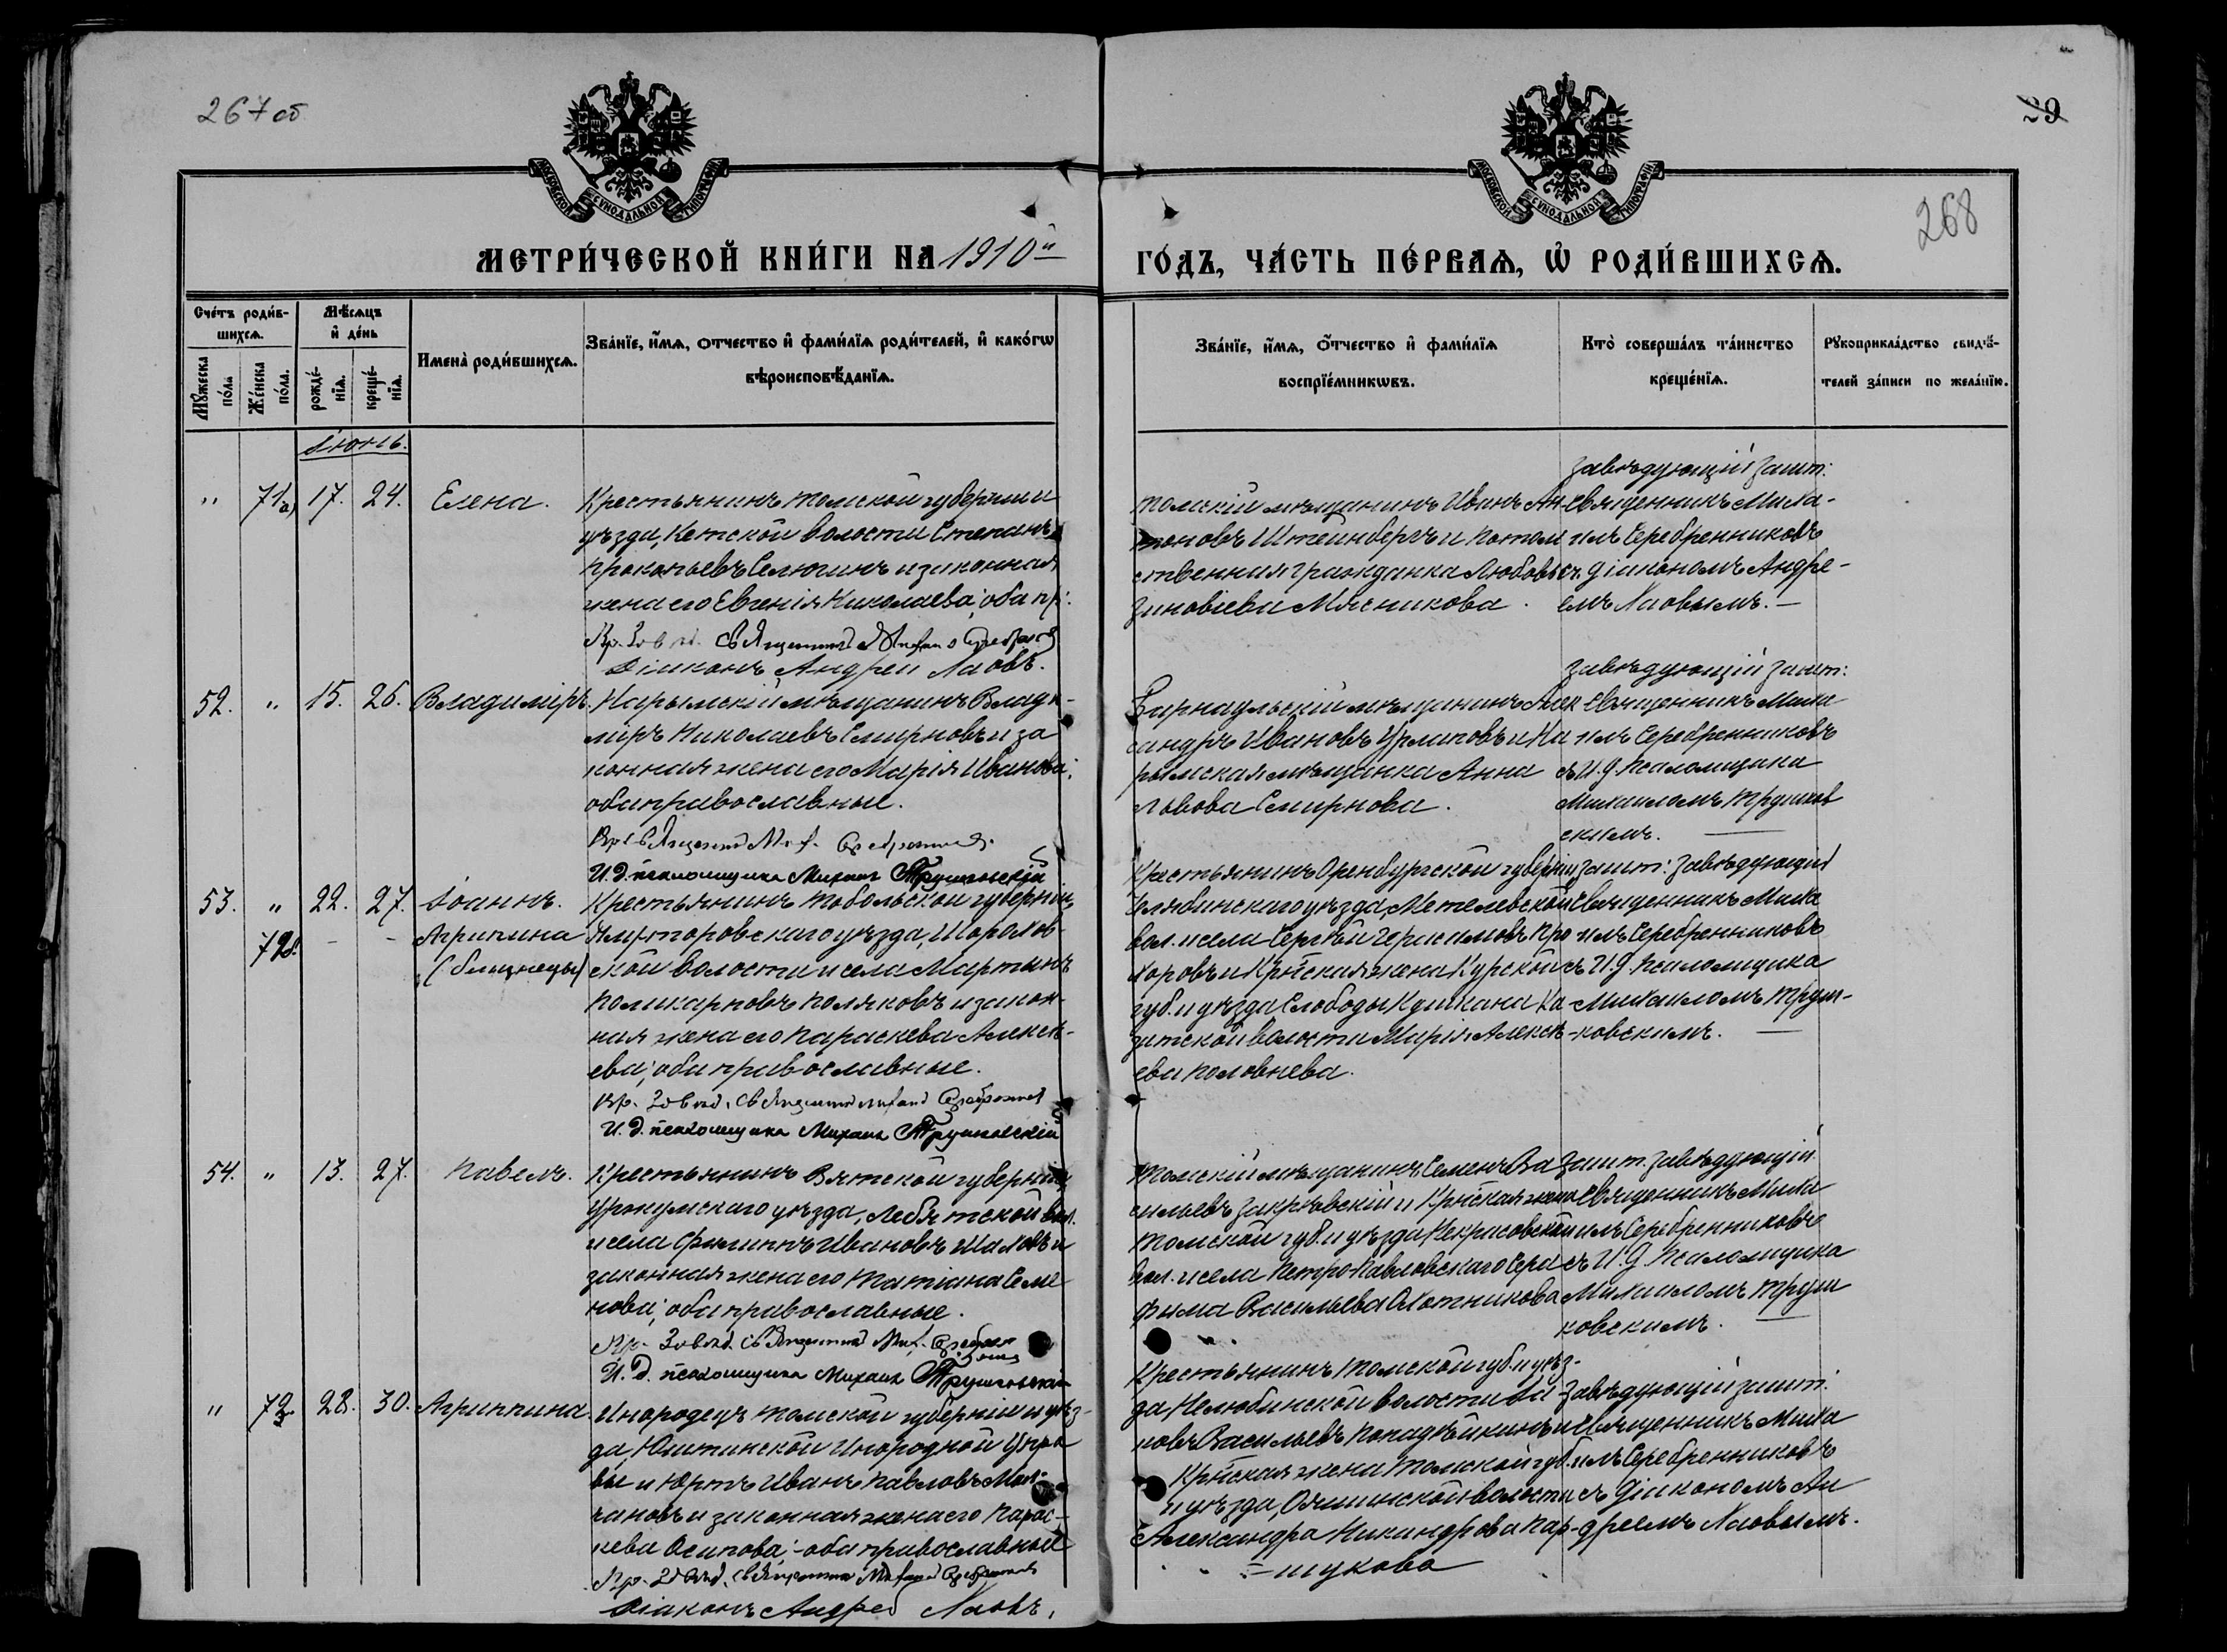 267 об
29
268
МОСКОВСКОЙ СѴНОДАЛЬНОЙ ТИПОГРАФІИ
МОСКОВСКОЙ СѴНОДАЛЬНОЙ ТИПОГРАФІИ
МЕТРИ́ЧЕСКОЙ КНИ́ГИ НА 1910й
ГО́ДЪ, ЧА́СТЬ ПЕ́РВАѦ, Ѡ҆ РОДИ́ВШИХСѦ.
Сче́тъ роди́в-
шихсѧ.
Мѣ́сѧцъ
и҆ де́нь
Мꙋ́жеска
по́ла
Же́нска
по́ла.
рожде́-
нїѧ.
креще́-
нїѧ.
Имена̀ роди́вшихсѧ.
Зва́нїе, и҆́мѧ, о́тчество и҆ фами́лїѧ роди́телей, и҆ како́гѡ
вѣроисповѣ́данїѧ.
Зва́нїе, и҆́мѧ, о́тчество и҆ фами́лїѧ
воспрїе́мникѡвъ.
Кто̀ соверша́лъ та́инство
креще́нїѧ.
Рꙋкоприкла́дство свидѣ́-
телей за́писи по жела́нїю.
Іюнь.
" 71а) 17. 24. Елена.
Крестьянинъ Томской губерніи и
уѣзда, Кетской волости Степанъ
Прокопьевъ Селюгинъ и законная
жена его Евгенія Николаева; оба пр:
Діаконъ Андрей Лаовъ.
Томскій мѣщанинъ Иванъ Ан-
тоновъ Штейнбергъ и потом
ственная гражданка Любовь
Зиновіева Мясникова.
Завѣдующій зашт:
священникъ Миха-
илъ Серебренниковъ
съ діакономъ Андре-
емъ Лаовымъ. —
52. " 15. 26. Владиміръ.
Нарымскій мѣщанинъ Влади-
міръ Николаевъ Смирновъ и за
конная жена его Марія Иванова;
оба православные.
И.д. псаломщика Михаилъ Трушковскій
Барнаульскій мѣщанинъ Алек
сандръ Ивановъ Урлаповъ и На
рымская мѣщанка Анна
Львова Смирнова.
Завѣдующій зашт:
священникъ Миха
илъ Серебренниковъ
съ И.д. псаломщика
Михаиломъ Трушков
скимъ. —
53. " 22. 27. Іоаннъ.
72б. — — Агрипина
(близнецы)
Крестьянинъ Тобольской губерніи,
Ялуторовскаго уѣзда, Шорохов-
ской волости и села Мартынъ
Поликарповъ Поляковъ и закон-
ная жена его Параскева Алексѣ-
ева; оба православные.
И.д. псаломщика Михаилъ Трушковскій
Крестьянинъ Оренбургской губерніи
Челябинскаго уѣзда, Метелевской
вол. и села Сергѣй Герасимовъ Про
хоровъ и Кр-ская жена Курской
губ. и уѣзда Слободы Ка
зитской волости Марія Алексѣ
ева Половнева.
зашт: завѣдующій
священникъ Миха
илъ Серебренниковъ
съ И.д. псаломщика
Михаиломъ Труш-
ковскимъ. —
54. " 13. 27. Павелъ.
Крестьянинъ Вятской губерніи,
Уржумскаго уѣзда, Лебятской вол.
и села Филиппъ Ивановъ Шаховъ и
законная жена его Татіана Семе
нова; оба православные.
И.д. псаломщика Михаилъ Трушковскій
Томскій мѣщанинъ Семенъ Ва
сильевъ Закржевскій и Кр-ская жена
Томской губ. и уѣзда Некрасовской
вол. и села Петро-Павловскаго Сера
фима Васильева Охотникова
зашт. завѣдующій
священникъ Миха
илъ Серебренниковъ
съ И.д. псаломщика
Михаиломъ Труш
ковскимъ. —
" 73. 28. 30. Агриппина.
Инородецъ Томской губерніи и уѣз-
да, Юштинской Инородной Упра
вы и юртъ Иванъ Павловъ Мол-
чановъ и законная жена его Парас-
кева Осипова; - оба православные
Діаконъ Андрей Лаовъ.
Крестьянинъ Томской губ. и уѣз-
да Нелюбинской волости Іа
ковъ Васильевъ Попадѣйкинъ и
Кр-ская жена Томской губ.
и уѣзда, Ояшинской волости
Александра Никандрова Пар-
шукова
Завѣдующій зашт:
священникъ Миха
илъ Серебренниковъ
съ діакономъ Ан
дреемъ Лаовымъ.